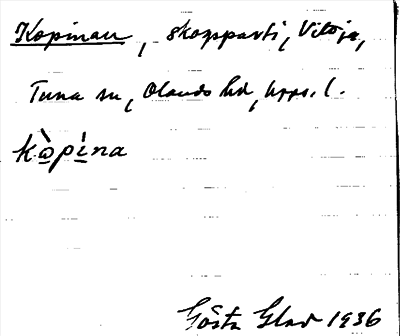 Kopinan, skogsparti, Vitöja,
Tuna sn, Olands hd, Upps. l.
kò̲pì̲na
Gösta Glad 1936